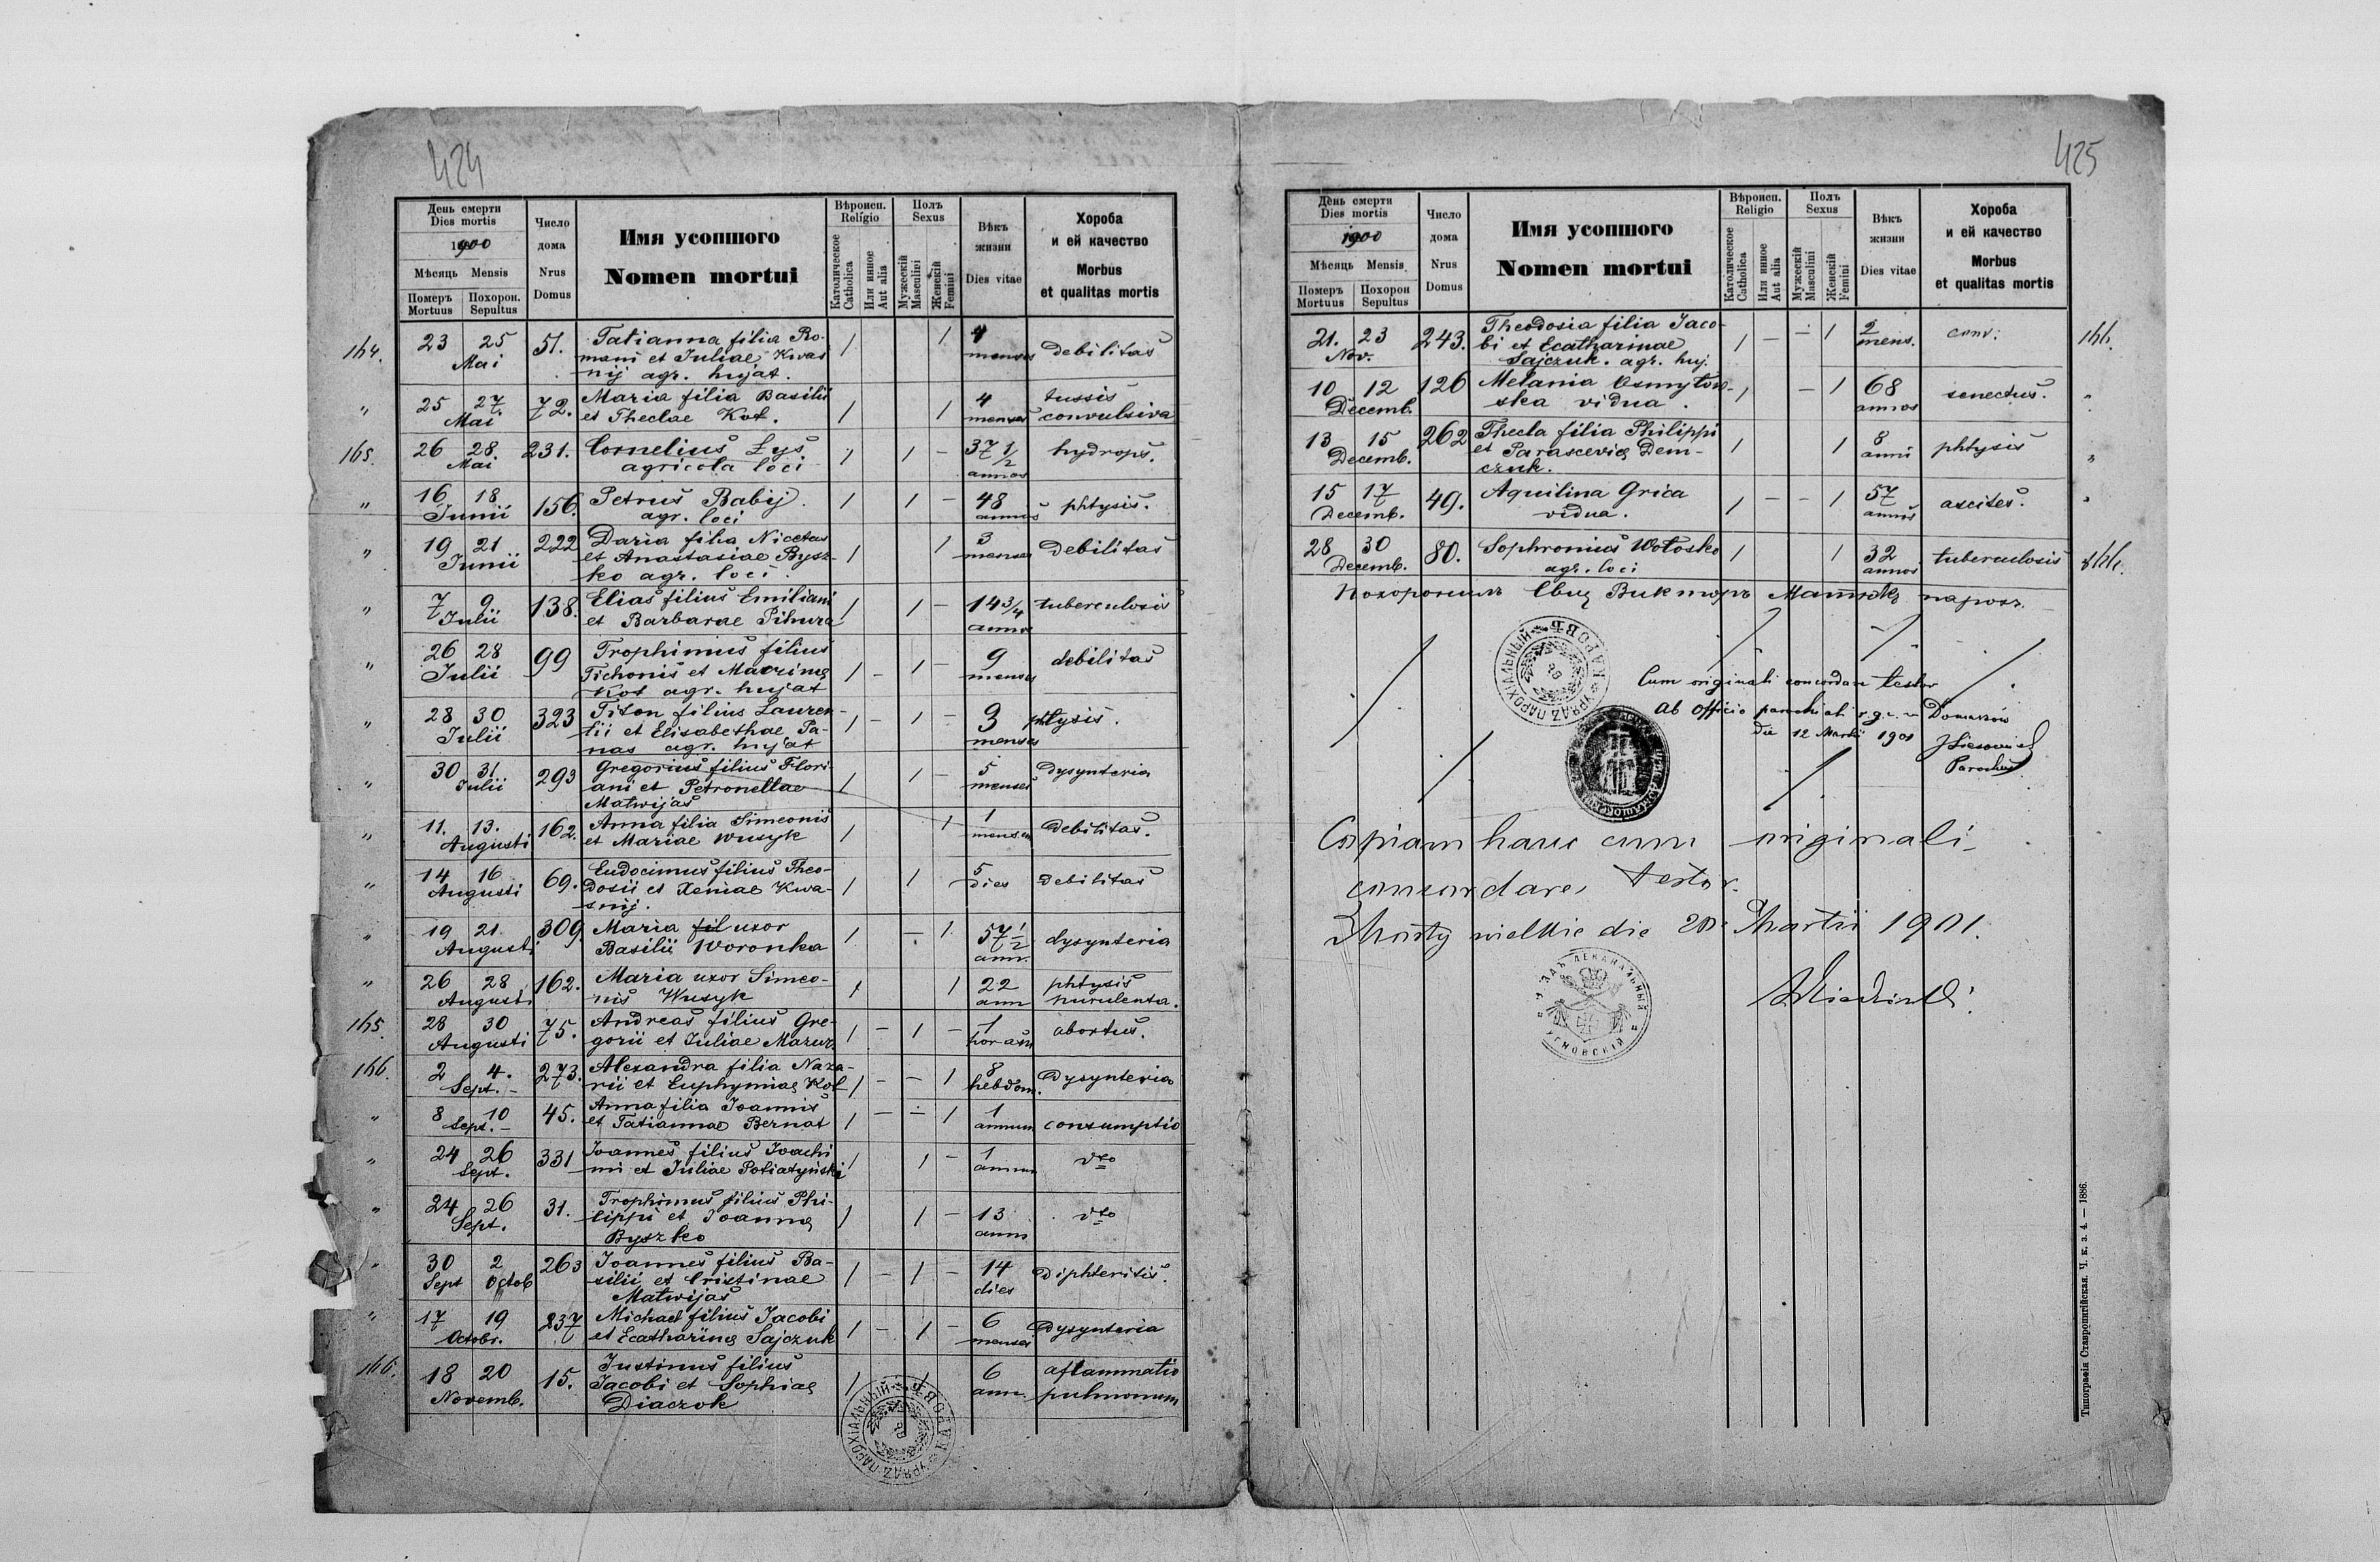 424
День смерти
Dies mortis
1900
Мѣсяць Mensis
Померъ Похорон.
Mortuus Sepultus
Число
дома
Nrus
Domus
Имя усопшого
Nomen mortui
Вѣроисп.
Religio
Католическое
Catholica
Или инное
Aut alia
Полъ
Sexus
Мужескій
Masculini
Женскій
Femini
Вѣкъ
жизни
Dies vitae
Хороба
и ей качество
Morbus
et qualitas mortis
164. 23 25 51. Tatianna filia Ro- 1 1 4
Mai mani et Juliae Kwas menses debilitas
nij agr. hujat.
" 25 27 72. Maria filia Basilii 1 1 4 tussis
Mai et Theclae Kot. menses convulsiva
165. 26 28. 231. Cornelius Łys 1 1 – 37 1/2 hydrops.
Mai agricola loci annos
" 16 18 156. Petrus Babij. 1 1 – 48 phtysis.
Junii agr. loci annos
" 19 21 222 Daria filia Nicetae 1 1 3 debilitas
Junii et Anastasiae Bysz- menses
ko agr. loci.
" 7 9 138. Elias filius Emiliani 1 1 – 14 3/4 tuberculosis
Julii et Barbarae Pihura annos
" 26 28 99 Trophimus filius 1 – 1 – 9 debilitas
Julii Tichonis et Macrinae menses
Kot agr. hujat
" 28 30 323 Titon filius Lauren- 1 – 1 – 3 phtysis.
Julii tii et Elisabethae Pa- menses
nas agr. hujat
" 30 31 293 Gregorius filius Flori- 1 1 – 5 dysynteria
Julii ani et Petronellae menses
Matwijas
" 11. 13. 162. Anna filia Simeonis 1 1 1 debilitas.
Augusti et Mariae Wusyk mensem
" 14 16 69. Eudocimus filius Theo- 1 1 5 debilitas
Augusti dosii et Xeniae Kwa- dies
snij.
" 19 21 309 Maria fil uxor 1 – 1 57 1/2 dysynteria
Augusti Basilii Woronka ann.
" 26 28 162. Maria uxor Simeo- 1 1 22 phtysis
Augusti nis Wusyk ann purulenta.
165. 28 30 75. Andreas filius Gre- 1 – 1 – 1 abortus.
Augusti gorii et Juliae Mazur horam
166. 2 4. 273. Alexandra filia Naza- 1 – – 1 8 dysynteria
Sept. – rii et Euphymiae Kot hebdom.
" 8 10 45. Anna filia Joannis 1 – – 1 1 consumptio
Sept. – et Tatiannae Bernat annum
" 24 26 331 Joannes filius Joachi 1 1 – 1 dto
Sept. mi et Juliae Potiatyński annum
" 24 26 31. Trophimus filius Phi- 1 1 – 13 dto
Sept. lippi et Joannae anni
Byszko
" 30 2 263 Joannes filius Ba- 1 – 1 – 14 diphteritis.
Sept Octob silii et Cristinae dies
Matwijas
" 17 19 237 Michael filius Jacobi 1 – 1 – 6 dysynteria
Octobr. et Ecatharinae Sajczuk menses
166. 18 20 15. Justinus filius 1 1 6 aflammatio
Novemb. Jacobi et Sophiae ann. pulmonum
Diaczok
УРЯДЪ ПАРОХІАЛЬНЫЙ
425
День смерти
Dies mortis
1900
Мѣсяць Mensis
Померъ Похорон
Mortuus Sepultus
Число
дома
Nrus
Domus
Имя усопшого
Nomen mortui
Вѣроисп.
Religio
Католическое
Catholica
Или инное
Aut alia
Полъ
Sexus
Мужескій
Masculini
Женскій
Femini
Вѣкъ
жизни
Dies vitae
Хороба
и ей качество
Morbus
et qualitas mortis
21. 23 243. Theodosia filia Jaco- 1 – – 1 2 conv: 166.
Nov. bi et Ecatharinae mens.
Sajczuk. agr. huj.
10 12 126 Melania Osmytow- 1 – 1 68 senectus. "
Decemb. ska vidua. annos
13 15 262 Thecla filia Philippi 1 1 8 phtysis "
Decemb. et Parasceviae Dem- anni
czuk.
15 17 49. Aquilina Grica 1 – – 1 57 ascites. "
Decemb. vidua. annos
28 30 80. Sophronius Wołosko 1 1 32 tuberculosis 166.
Decemb. agr. loci annos
Похоронилъ Викторъ парохъ.
УРЯДЪ ПАРОХІАЛЬНЫЙ
Cum originali concordare testor
Ab officio parochiali r.g.c. in Domaszów
die 12 Martii 1901
Parochus
Copiam hanc cum originali
concordare testor.
Mosty wielkie die 20. Martii 1901.
УРЯДЪ ДЕКАНАЛЬНЫЙ
Типографія Ставропигійская. Ч. к. з. 4. — 1886.